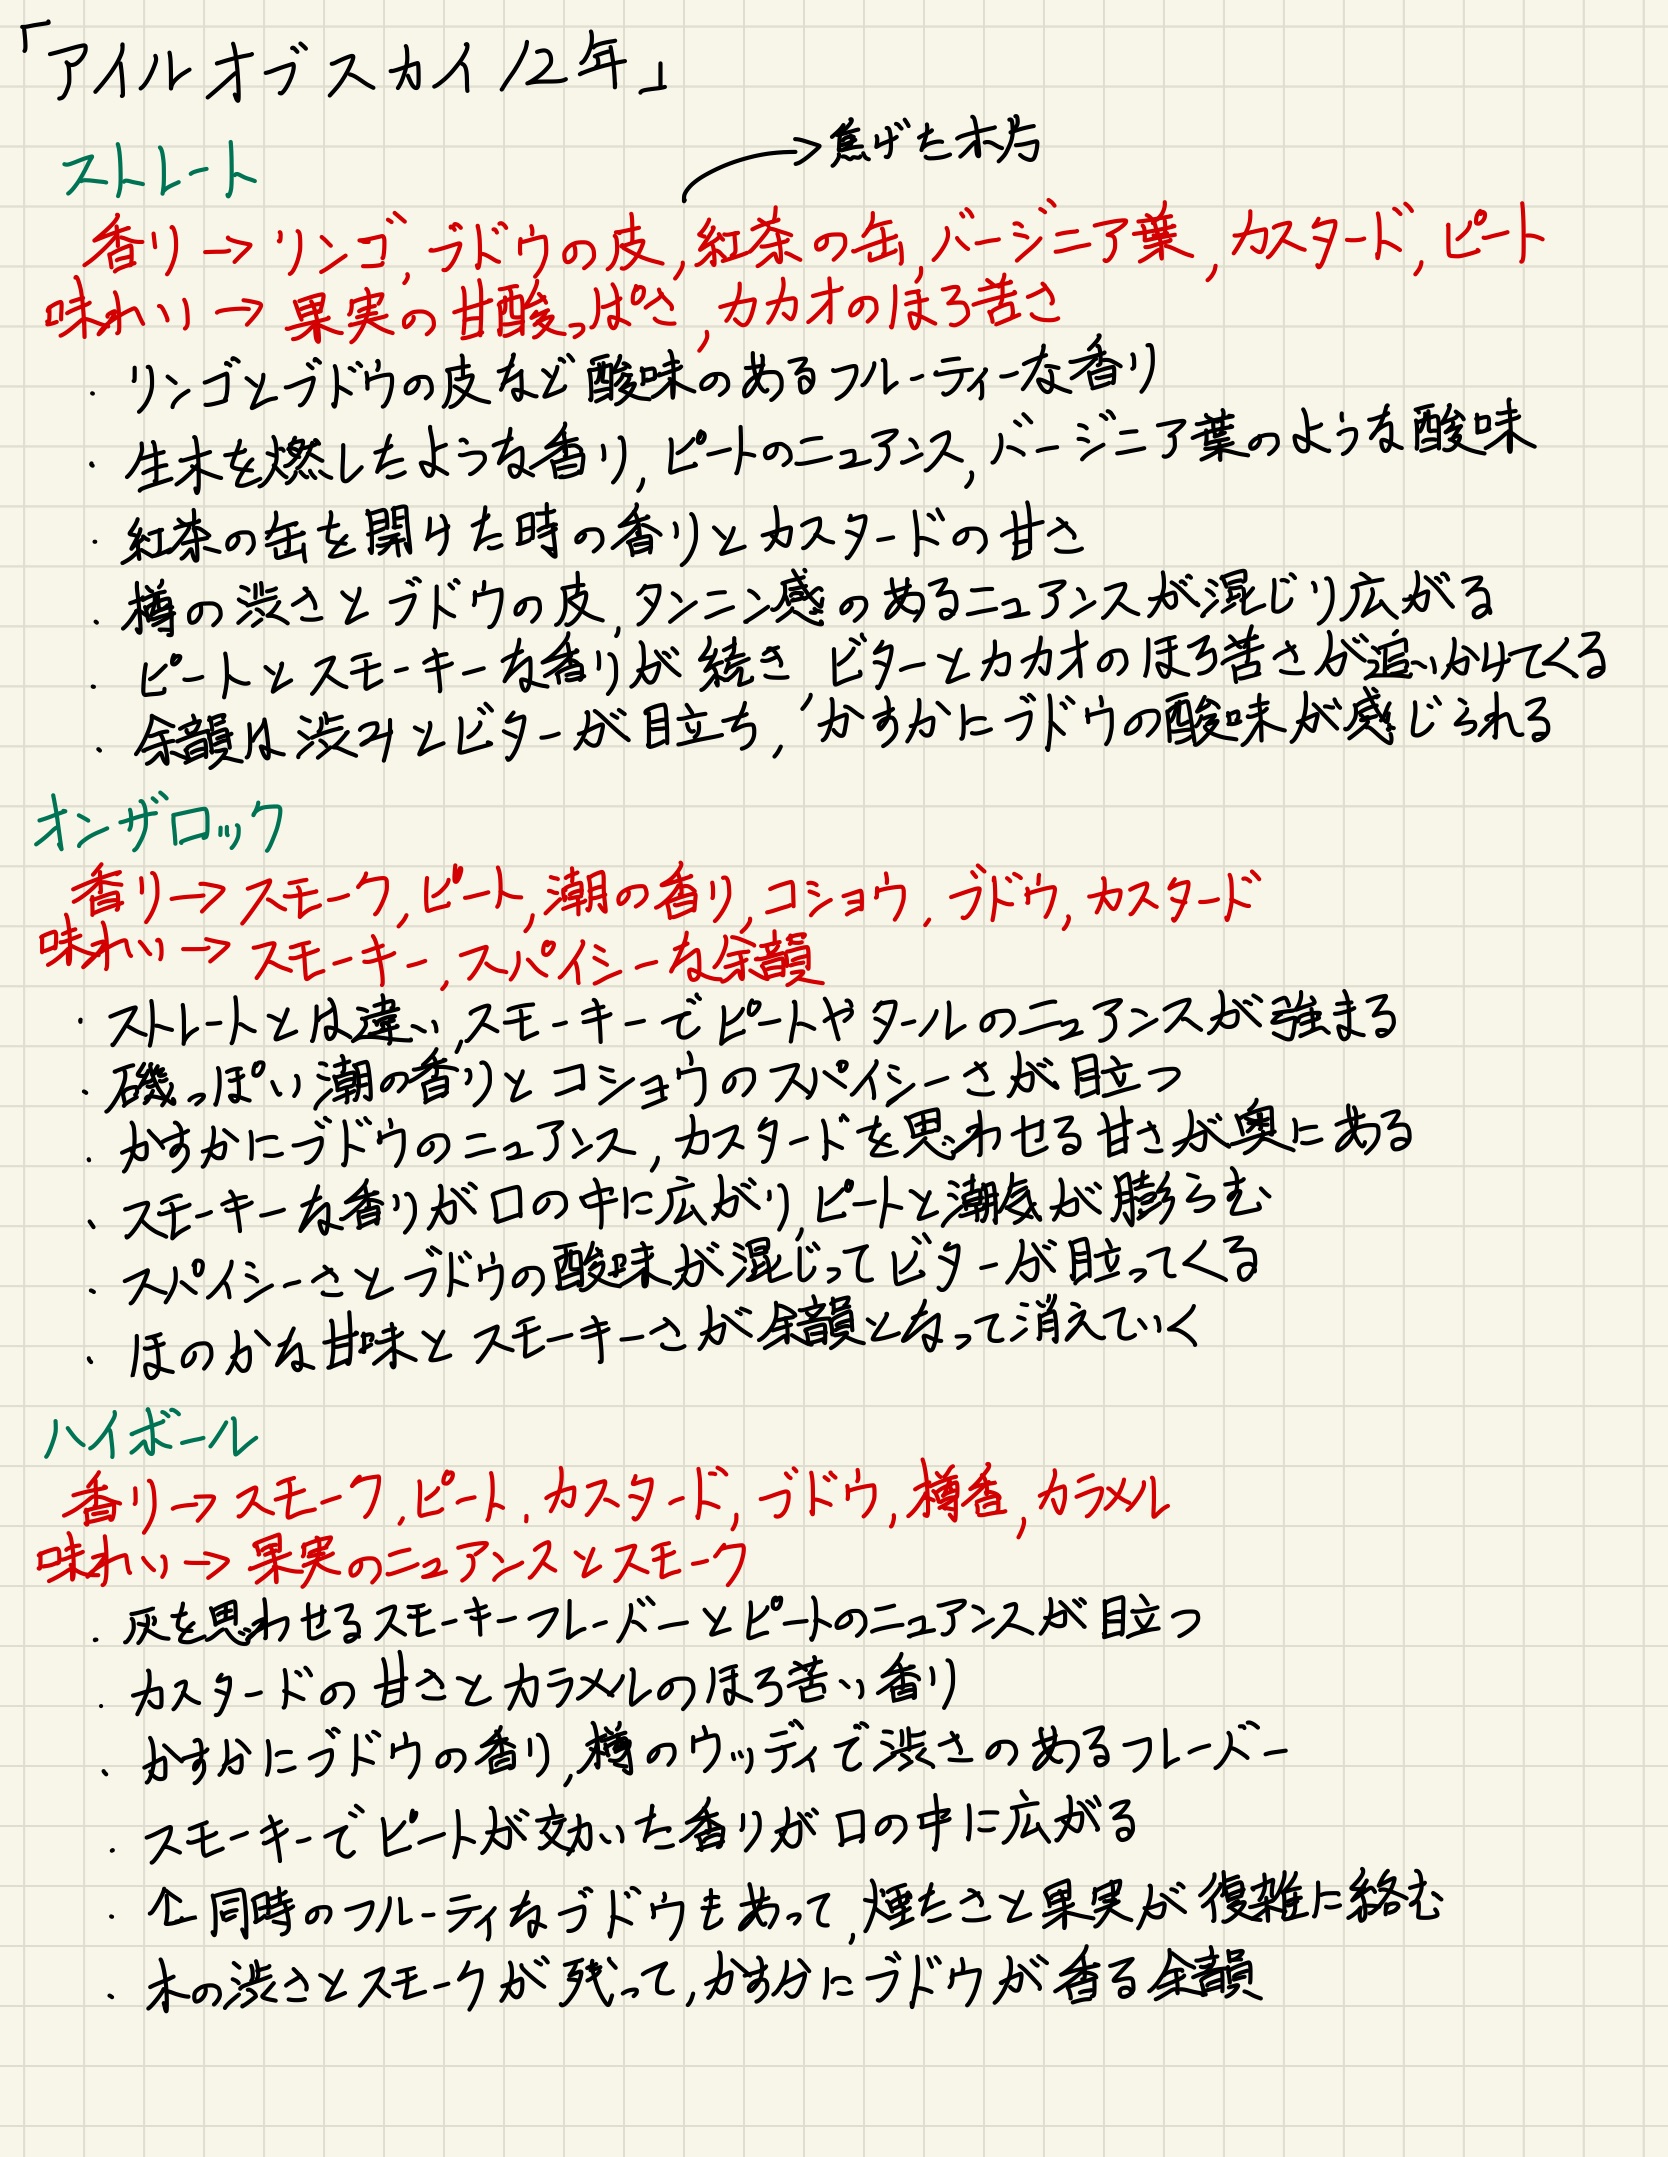 「アイルオブスカイ12年」
→焦げた木片
ストレート
香り→リンゴ,ブドウの皮,紅茶の缶,バージニア葉,カスタード,ピート
味わい→果実の甘酸っぱさ,カカオのほろ苦さ
・リンゴとブドウの皮など酸味のあるフルーティーな香り
・生木を燃したような香り,ピートのニュアンス,バージニア葉のような酸味
・紅茶の缶を開けた時の香りとカスタードの甘さ
・樽の渋さとブドウの皮,タンニン感のあるニュアンスが混じり広がる
・ピートとスモーキーな香りが続き,ビターとカカオのほろ苦さが追いかけてくる
・余韻は渋みとビターが目立ち,かすかにブドウの酸味が感じられる
オンザロック
香り→スモーク,ピート,潮の香り,コショウ,ブドウ,カスタード
味わい→スモーキー,スパイシーな余韻
・ストレートとは違い,スモーキーでピートやタールのニュアンスが強まる
・磯っぽい潮の香りとコショウのスパイシーさが目立つ
・かすかにブドウのニュアンス,カスタードを思わせる甘さが奥にある
・スモーキーな香りが口の中に広がり,ピートと潮気が膨らむ
・スパイシーさとブドウの酸味が混じってビターが目立ってくる
・ほのかな甘味とスモーキーさが余韻となって消えていく
ハイボール
香り→スモーク,ピート,カスタード,ブドウ,樽香,カラメル
味わい→果実のニュアンスとスモーク
・灰を思わせるスモーキーフレーバーとピートのニュアンスが目立つ
・カスタードの甘さとカラメルのほろ苦い香り
・かすかにブドウの香り,樽のウッディで渋さのあるフレーバー
・スモーキーでピートが効いた香りが口の中に広がる
・↑同時のフルーティなブドウもあって,煙たさと果実が復雑に絡む
・木の渋さとスモークが残って,かすかにブドウが香る余韻